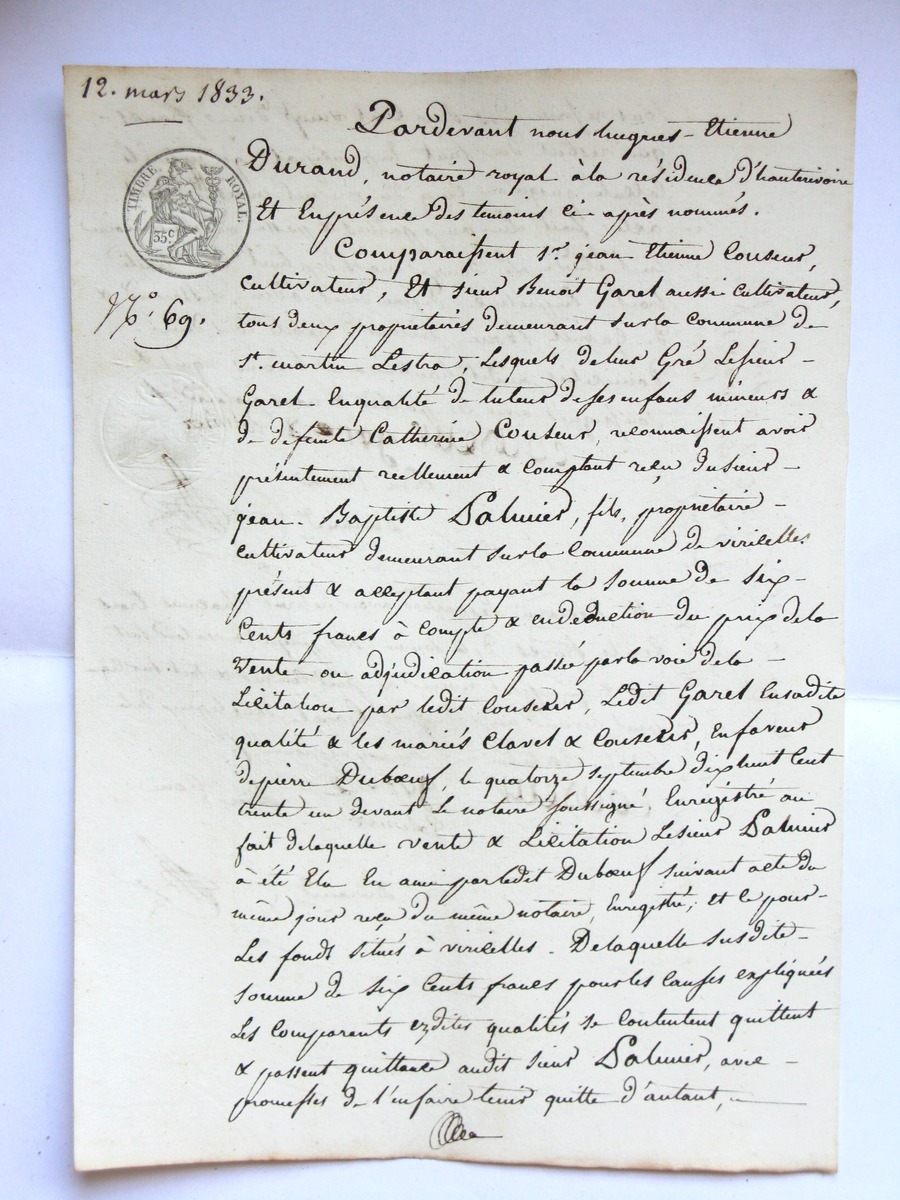 12. mars 1833.
Pardevant nous hugues-Etienne
Durand, notaire royal à la résidence d'hauterivoire
TIMBRE ROYAL.
35c
Et En présence des temoins ci-après nommés.
Comparaissent sr. jean Etienne Couseur,
N.° 69.
cultivateur, Et sieur Benoît Garel aussi cultivateur,
tous deux propriétaires demeurant sur la commune de
st. martin Lestra, Lesquels de leur Gré Lesieur-
Garel Enqualité de tuteur deses enfans mineurs &
de defunte Catherine Couseur, reconnaissent avoir
présentement reellement & comptant reçu dusieur-
jean-Baptiste Palmier, fils, propriétaire-
cultivateur demeurant sur la Commune de viricelles
présent & acceptant payant la somme de six-
Cents francs à compte & en deduction du prix de la
Vente ou adjudication passée par la voie de la-
Licitation par ledit Couseur, Ledit Garel Ensadite
qualité & les mariés Clavel & Couseur, En faveur
depierre Duboeuf, le quatorze septembre dix huit Cent
trente un devant Le notaire soussigné, Enregistré au
fait delaquelle vente & Licitation Lesieur Palmier
à été Elu En ami par ledit Duboeuf suivant acte du
même jour reçu du même notaire, Enregistré; et ce pour-
Les fonds situés à viricelles. Delaquelle susdite-
somme de six Cents francs pour les causes expliquées
Les Comparents ezdites qualités se Contentent quittent
& passent quittance audit sieur Palmier, avec-
promesses de l'enfaire tenir quitte d'autant,